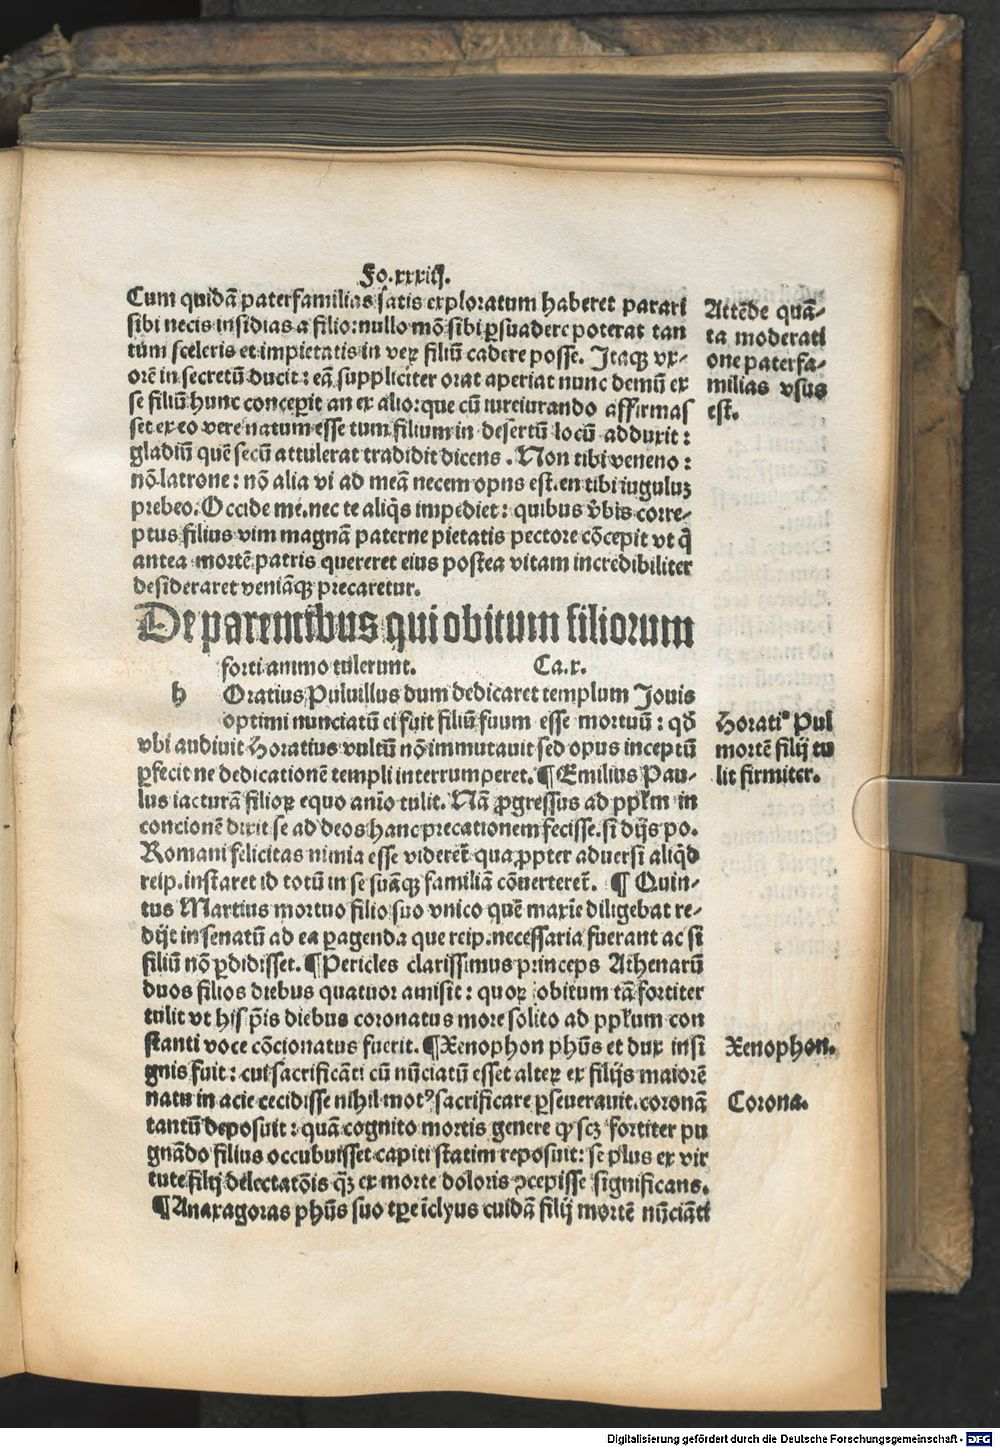 Fo.xxxiij.
Cum quidā paterfamilias satis exploratum haberet parari
sibi necis insidias a filio: nullo mō sibi ꝑsuadere poterat tan
tum sceleris et impietatis in veꝝ filiū cadere posse. Itaqꝫ vx-
orē in secretū ducit: eā suppliciter orat aperiat nunc demū ex
se filiū hunc conceperit an ex alio: que cū iureiurando affirmas
set ex eo vere natum esse tum filium in desertū locū adduxit:
gladiū quē secū attulerat tradidit dicens. Non tibi veneno:
nō latrone: nō alia vi ad meā necem opus est. en tibi iuguluꝫ
prebeo. Occide me. nec te aliq̇s impediet: quibus v̄bis corre-
ptus filius vim magnā paterne pietatis pectore cōcepit vt q̄
antea mortē patris quereret eius postea vitam incredibiliter
desideraret veniāqꝫ precaretur.
Attēde quā-
ta moderati
one paterfa-
milias vsus
est.
De parentibus qui obitum filiorum
forti animo tulerunt. Ca.x.
h Oratius Puluillus dum dedicaret templum Jouis
optimi nunciatū ei fuit filiū suum esse mortuū: qd̄
vbi audiuit Horatius vultū nō immutauit sed opus inceptū
ꝑfecit ne dedicationē templi interrumperet. ¶ Emilius Pau-
lus iacturā filioꝝ equo anīo tulit. Nā ꝓgressus ad ppl̄m in
concionē dixit se ad deos hanc precationem fecisse. si dijs po.
Romani felicitas nimia esse videret̄ qua ꝓpter aduersi aliq̇d
reip. instaret id totū in se suāqꝫ familiā cōuerteret̄. ¶ Quin-
tus Martius mortuo filio suo vnico quē maxīe diligebat re-
dijt in senatū ad ea ꝑagenda que reip. necessaria fuerant ac si
filiū nō ꝑdidisset. ¶ Pericles clarissimus princeps Athenarū
duos filios diebus quatuor amisit: quoꝝ obitum tā fortiter
tulit vt his p̄is diebus coronatus more solito ad ppl̄um con
stanti voce cōcionatus fuerit. ¶ Xenophon ph̄us et dux insi
gnis fuit: cui sacrificāti cū nūciatū esset alteꝝ ex filijs maiorē
natu in acie cecidisse nihil motꝰ sacrificare ꝑseuerauit. coronā
tantū deposuit: quā cognito mortis genere ꝙ scꝫ fortiter pu
gnādo filius occubuisset capiti statim reposuit: se plus ex vir
tute filij delectatōis q̄ꝫ ex morte doloris ꝯcepisse significans.
¶ Anaxagoras ph̄us suo tꝑe īclyus cuidā filij mortē nūciāti
Horatiꝰ Pul
mortē filij tu
lit firmiter.
Xenophon.
Corona.
Digitalisierung gefördert durch die Deutsche Forschungsgemeinschaft - DFG